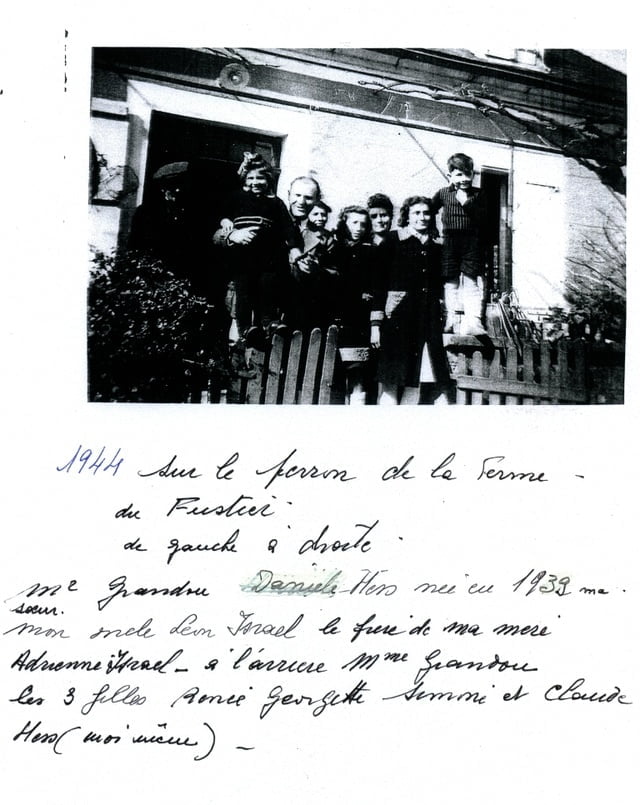 1944 sur le perron de la Ferme -
du Fustier.
de gauche à droite.
Mr Grandou Danièle Hess née en 1939 ma
sœur.
mon oncle Léon Israel le frère de ma mère
Adrienne Israel - à l'arrière Mme Grandou
les 3 filles Renée Georgette Simone et Claude
Hess (moi même) -